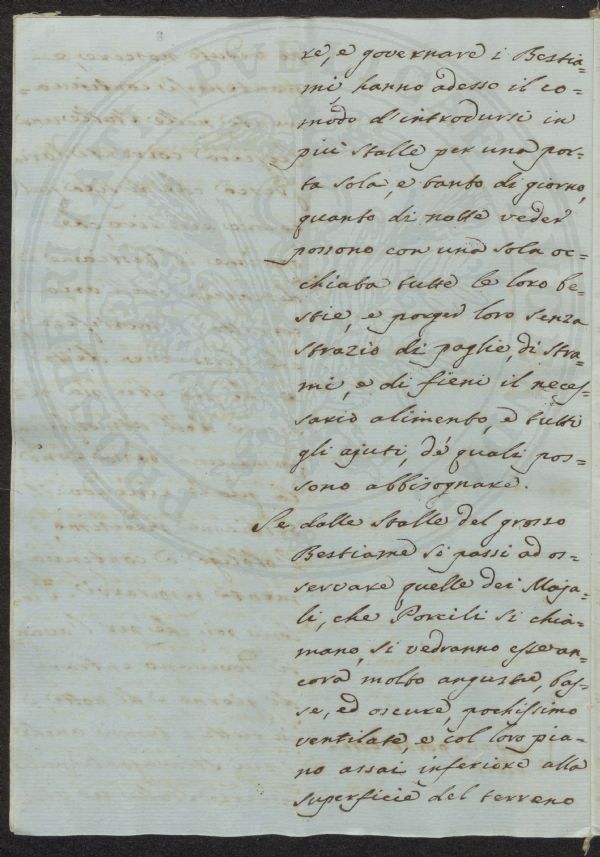 re, e governare i Bestia=
mi, hanno adesso il co=
modo d'introdursi in
più stalle per una por=
ta sola, e tanto di giorno,
quanto di notte veder
possono con una sola oc=
chiata tutte le loro be=
stie, e porger loro senza
strazio di paglie, di stra=
mi, e di fieni il neces=
sario alimento, e tutti
gli ajuti, de' quali pos=
sono abbisognare.
Se dalle stalle del grosso
Bestiame si passi ad os=
servare quelle dei Maja=
li, che Porcili si chia=
mano, si vedranno esse an=
cora molto anguste, bas=
se, ed oscure, pochissimo
ventilate e col loro pia=
no assai inferiore alla
superficie del terreno